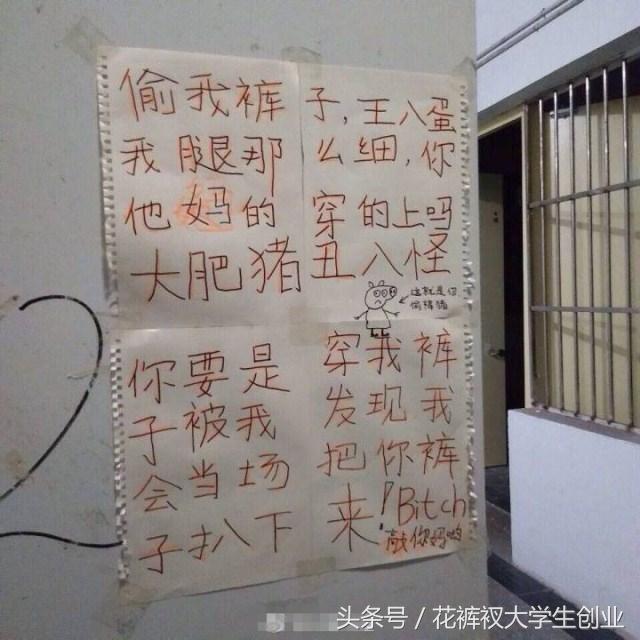 偷我裤子,王八蛋
我腿那么细,你
他妈的穿的上吗
大肥猪丑八怪
这就是你
偷猪猪
你要是穿我裤
子被我发现我
会当场把你裤
子扒下来!Bitch
敲你妈哟
头条号/花裤衩大学生创业